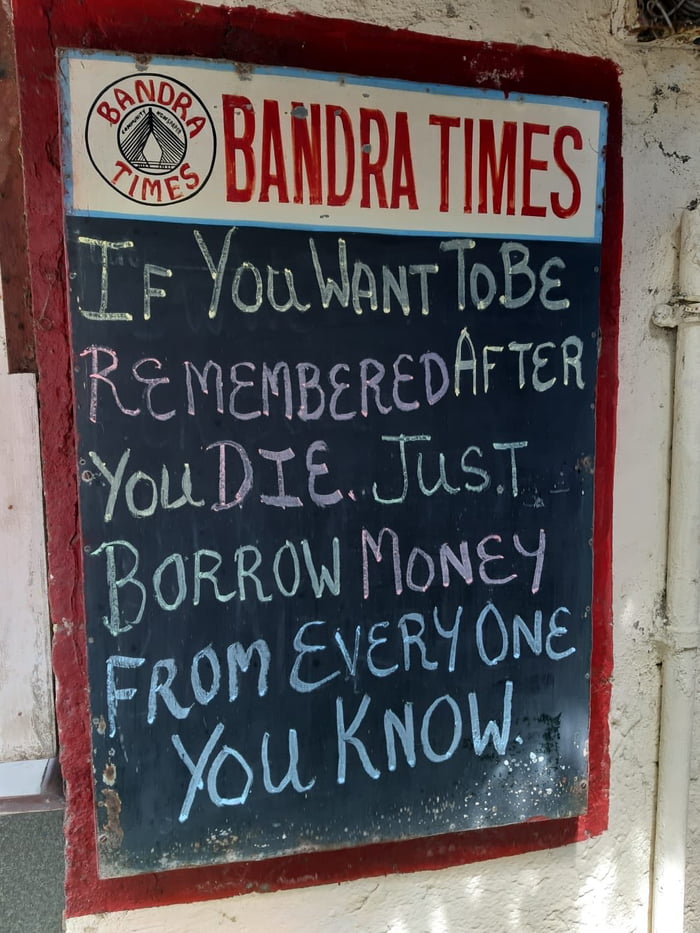 BANDRA
COMMUNITY NEWSPAPER
TIMES
BANDRA TIMES
IF YOU WANT TO BE
REMEMBERED AFTER
YOU DIE. JUST
BORROW MONEY
FROM EVERY ONE
YOU KNOW.